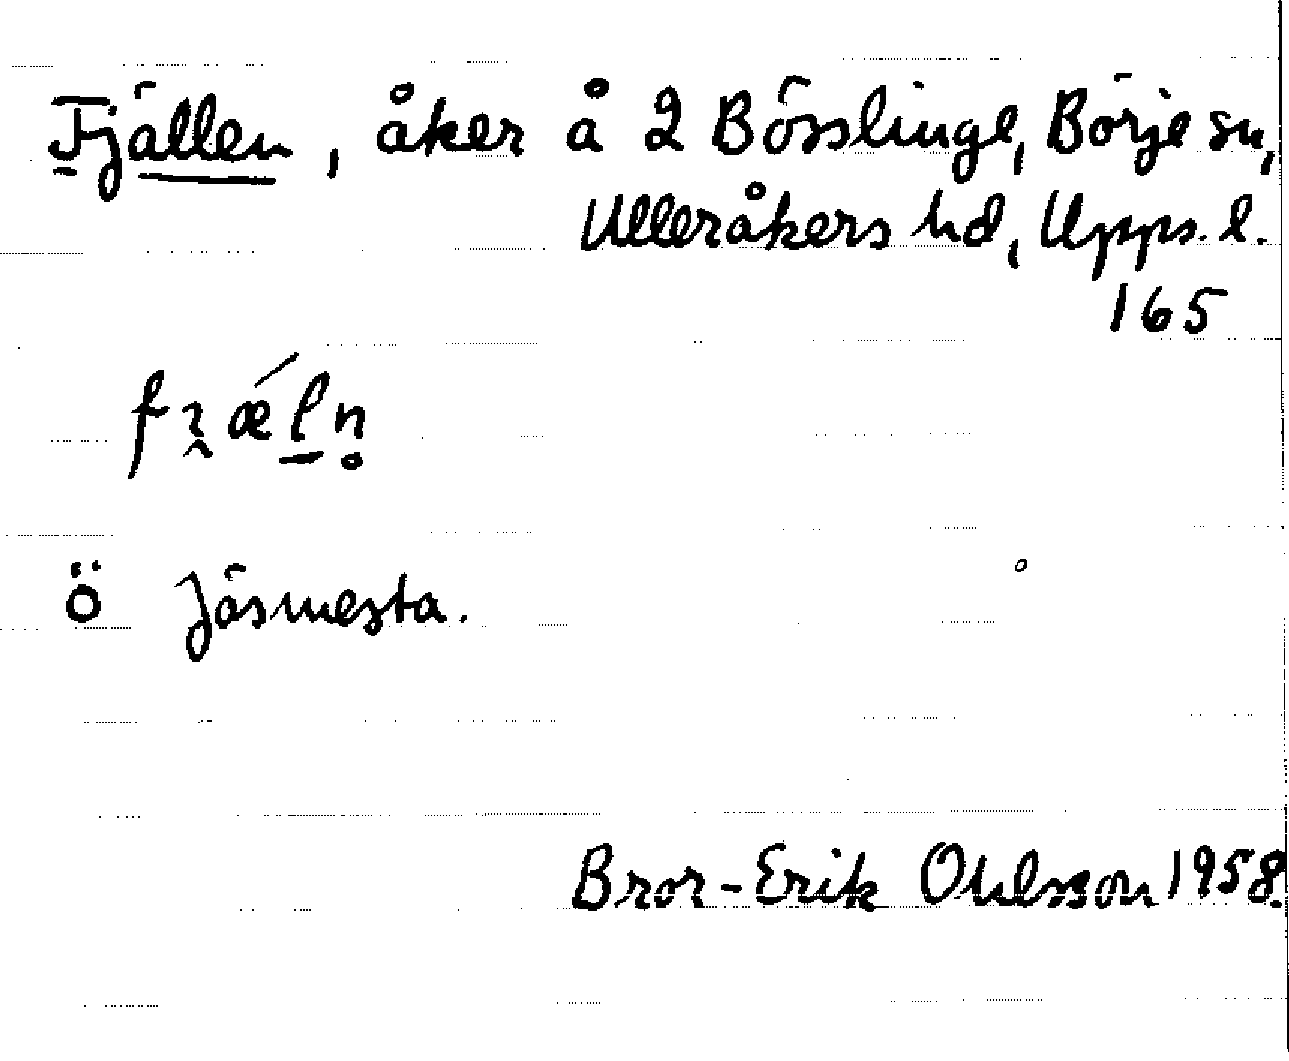 Fjällen, åker å 2 Bösslinge, Börje sn,
Ulleråkers hd, Upps. l.
165
ö Jäsmesta.
Bror-Erik Ohlsson 1958.